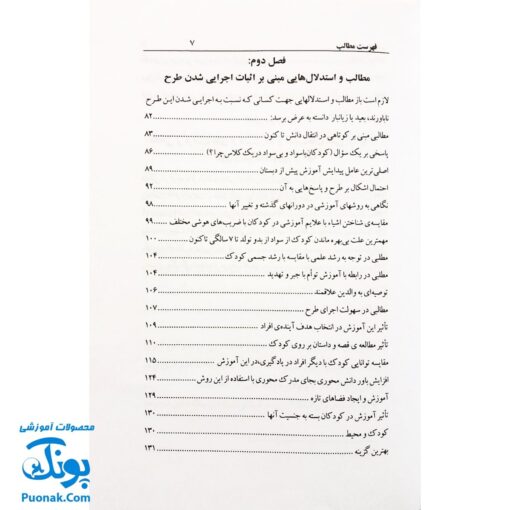 فهرست مطالب ۷
فصل دوم:
مطالب و استدلال‌هایی مبنی بر اثبات اجرایی شدن طرح
لازم است باز مطالب و استدلالهایی جهت کسانی که نسبت به اجرایی شدن این طرح
ناباورند، بعید یا زیانبار دانسته به عرض برسد: ۸۲
مطالبی مبنی بر کوتاهی در انتقال دانش تا کنون ۸۳
پاسخی بر یک سؤال (کودکان باسواد و بی‌سواد در یک کلاس چرا؟) ۸۶
اصلی‌ترین عامل پیدایش آموزش پیش از دبستان ۸۹
احتمال اشکال بر طرح و پاسخ‌هایی به آن ۹۲
نگاهی به روشهای آموزشی در دورانهای گذشته و تغییر آنها ۹۸
مقایسه‌ی شناختن اشیاء با علایم آموزشی در کودکان با ضریب‌های هوشی مختلف ۹۹
مهمترین علت بی‌بهره ماندن کودک از سواد از بدو تولد تا ۷ سالگی تا کنون ۱۰۰
مطلبی در توجه به رشد علمی با مقایسه با رشد جسمی کودک ۱۰۴
مطلبی در رابطه با آموزش توأم با جبر و تهدید ۱۰۴
توصیه‌ای به والدین علاقمند ۱۰۶
مطالبی در سهولت اجرای طرح ۱۰۷
تأثیر این آموزش در انتخاب هدف آینده‌ی افراد ۱۰۹
تأثیر مطالعه‌ی قصه و داستان بر روی کودک ۱۱۰
مقایسه توانایی کودک با دیگر افراد در یادگیری، در این آموزش ۱۱۵
افزایش باور دانش محوری بجای مدرک محوری با استفاده از این روش ۱۲۴
آموزش و ایجاد فضاهای تازه ۱۲۹
تأثیر آموزش در کودکان بسته به جنسیت آنها ۱۳۰
کودک و محیط ۱۳۰
بهترین گزینه ۱۳۱
محصولات آموزشی
پونک
Puonak.Com